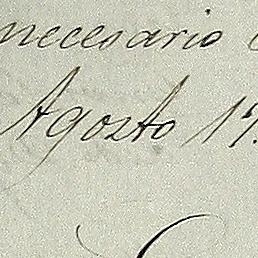 necesario
Agosto 17